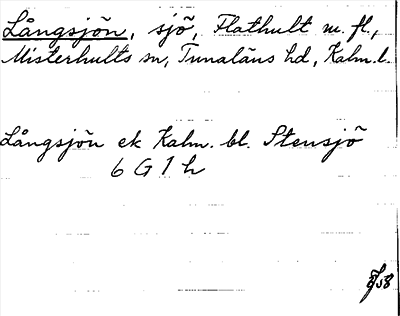 Långsjön, sjö, Flathult m. fl.,
Misterhults sn, Tunaläns hd, Kalm. l.
Långsjön ek Kalm. bl. Stensjö
6 G 1 h